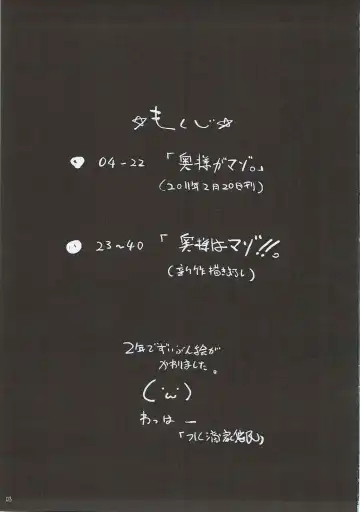 ☆もくじ☆
● 04-22 「奥様がマゾ。」
(2011年2月20日刊)
● 23~40 「奥様はマゾ!!。
(新作描き下ろし)
2年でずいぶん絵が
かわりました。
(´ω`)
わっはー
03